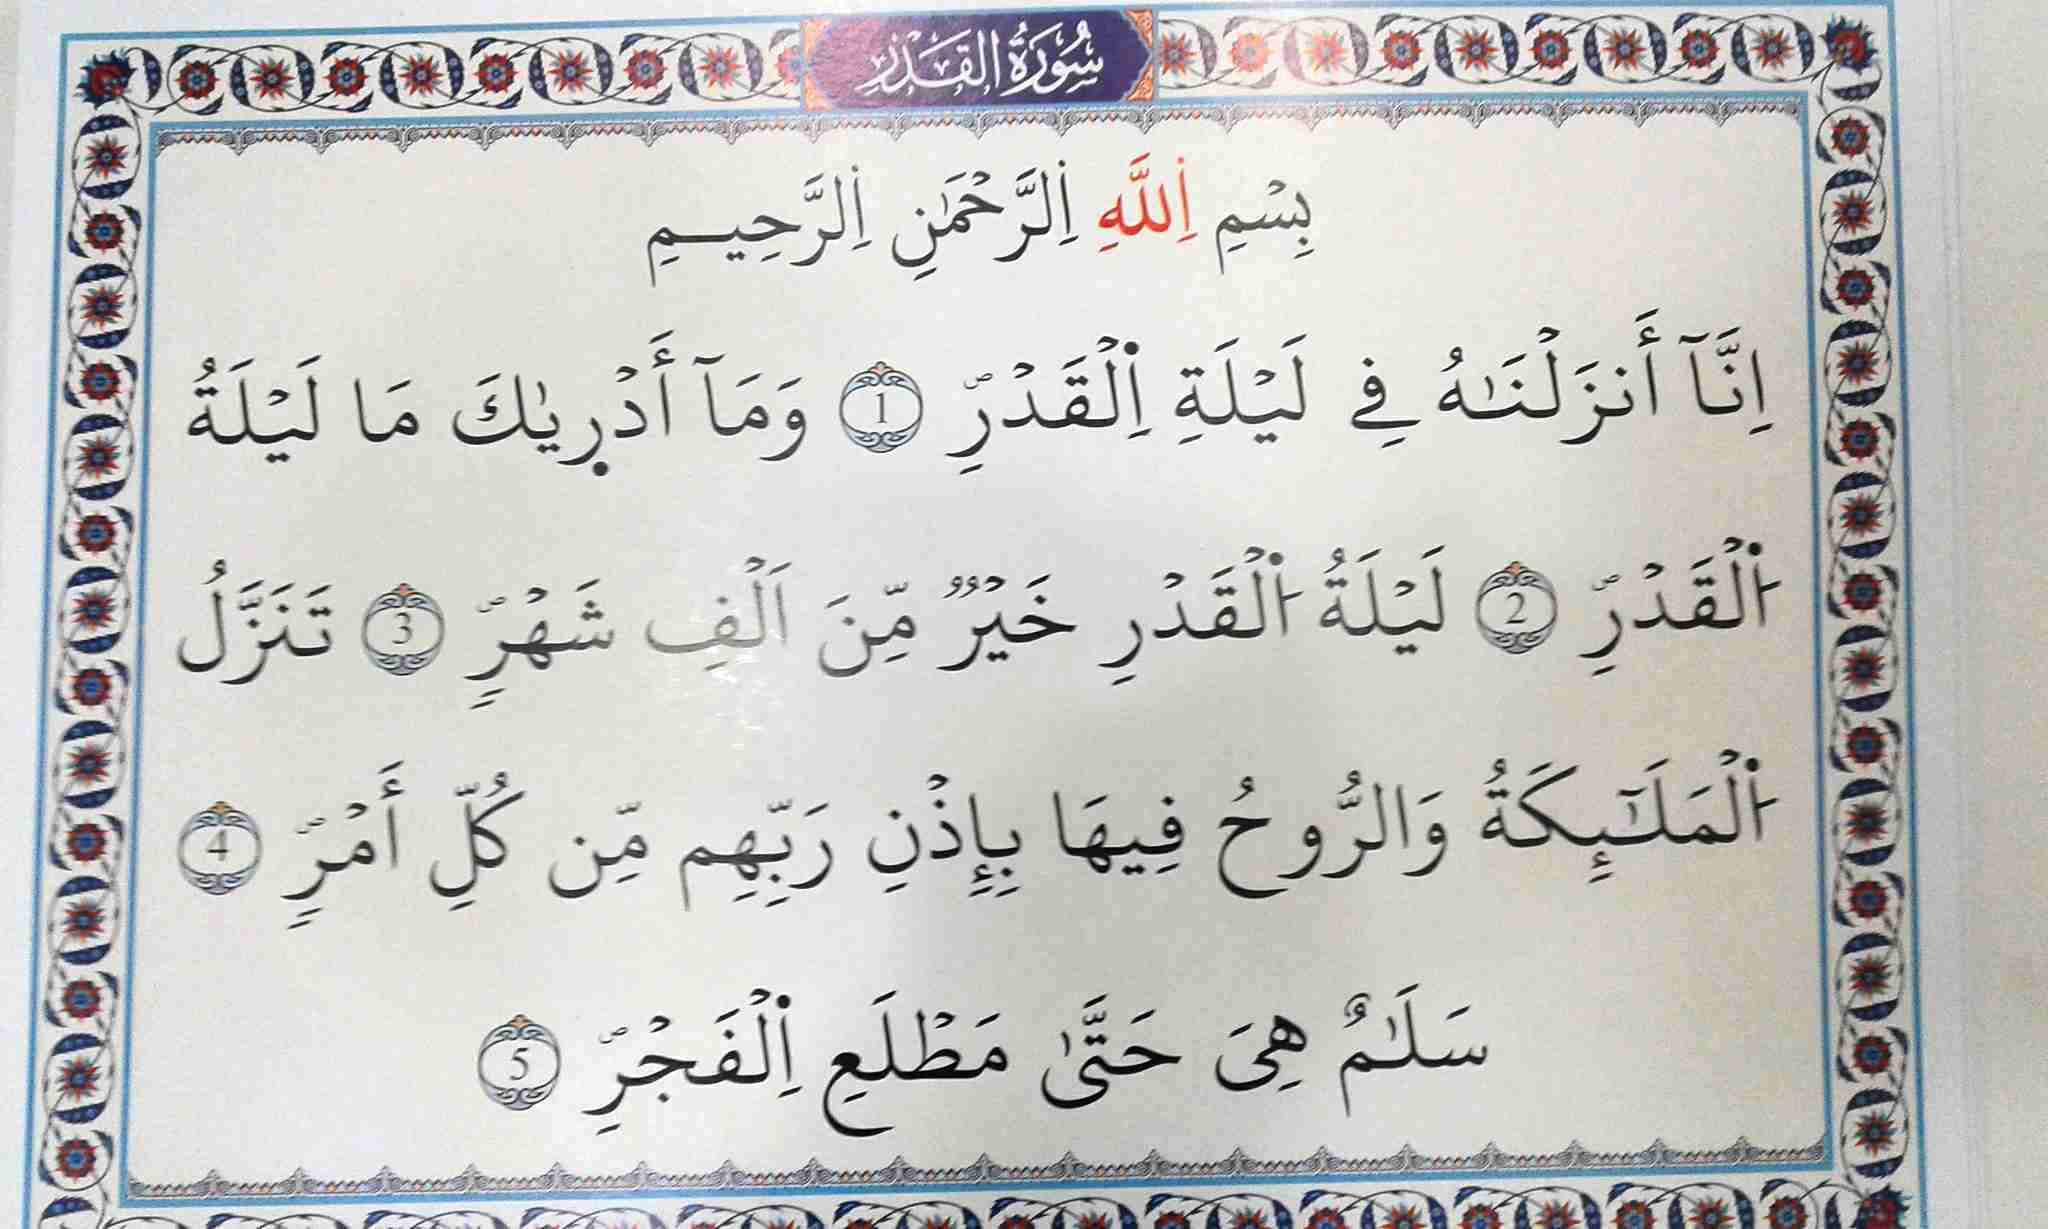 سُورَةُ القَدْرِ
بِسْمِ اِ۬للَّهِ اِ۬لرَّحْمَٰنِ اِ۬لرَّحِيمِ
اِنَّآ أَنزَلْنَٰهُ فِے لَيْلَةِ اِ۬لْقَدْرِۖ 1 وَمَآ أَدْر۪يٰكَ مَا لَيْلَةُ
اُ۬لْقَدْرِۖ 2 لَيْلَةُ اُ۬لْقَدْرِ خَيْرٌ مِّنَ اَلْفِ شَهْرٍۖ 3 تَنَزَّلُ
اُ۬لْمَلَٰٓئِكَةُ وَالرُّوحُ فِيهَا بِإِذْنِ رَبِّهِم مِّن كُلِّ أَمْرٍۖ 4
سَلَٰمٌ هِىَ حَتَّىٰ مَطْلَعِ اِ۬لْفَجْرِۖ 5